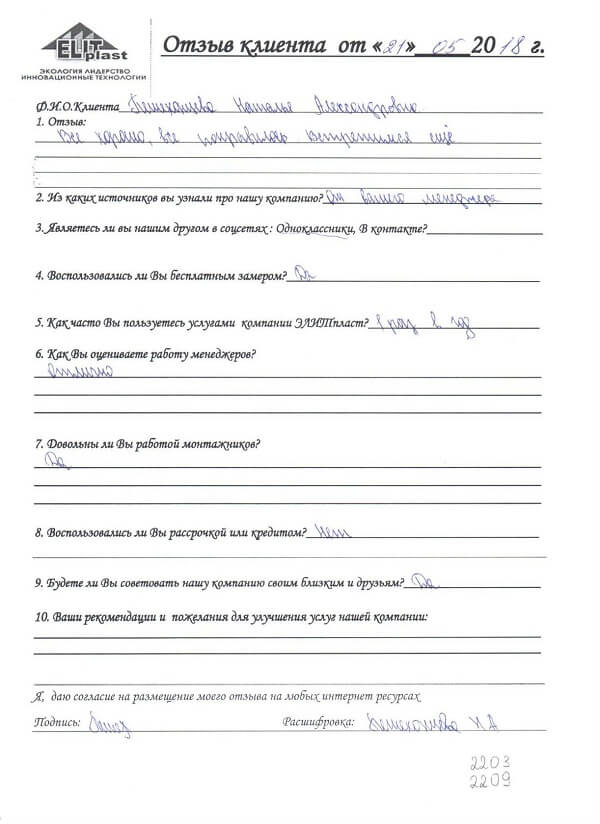 ELIT plast
ЭКОЛОГИЯ ЛИДЕРСТВО
ИННОВАЦИОННЫЕ ТЕХНОЛОГИИ
Отзыв клиента от «21» 05 2018 г.
Ф.И.О.Клиента Наталья Александровна
1. Отзыв:
Все хорошо, все понравилось встретимся ещё
2. Из каких источников вы узнали про нашу компанию? От вашего менеджера
3. Являетесь ли вы нашим другом в соцсетях : Одноклассники, В контакте?
4. Воспользовались ли Вы бесплатным замером? Да
5. Как часто Вы пользуетесь услугами компании ЭЛИТпласт? 1 раз в год
6. Как Вы оцениваете работу менеджеров?
отлично
7. Довольны ли Вы работой монтажников?
Да
8. Воспользовались ли Вы рассрочкой или кредитом? Нет
9. Будете ли Вы советовать нашу компанию своим близким и друзьям? Да
10. Ваши рекомендации и пожелания для улучшения услуг нашей компании:
Я, даю согласие на размещение моего отзыва на любых интернет ресурсах
Подпись: Расшифровка: Н А
2203
2209